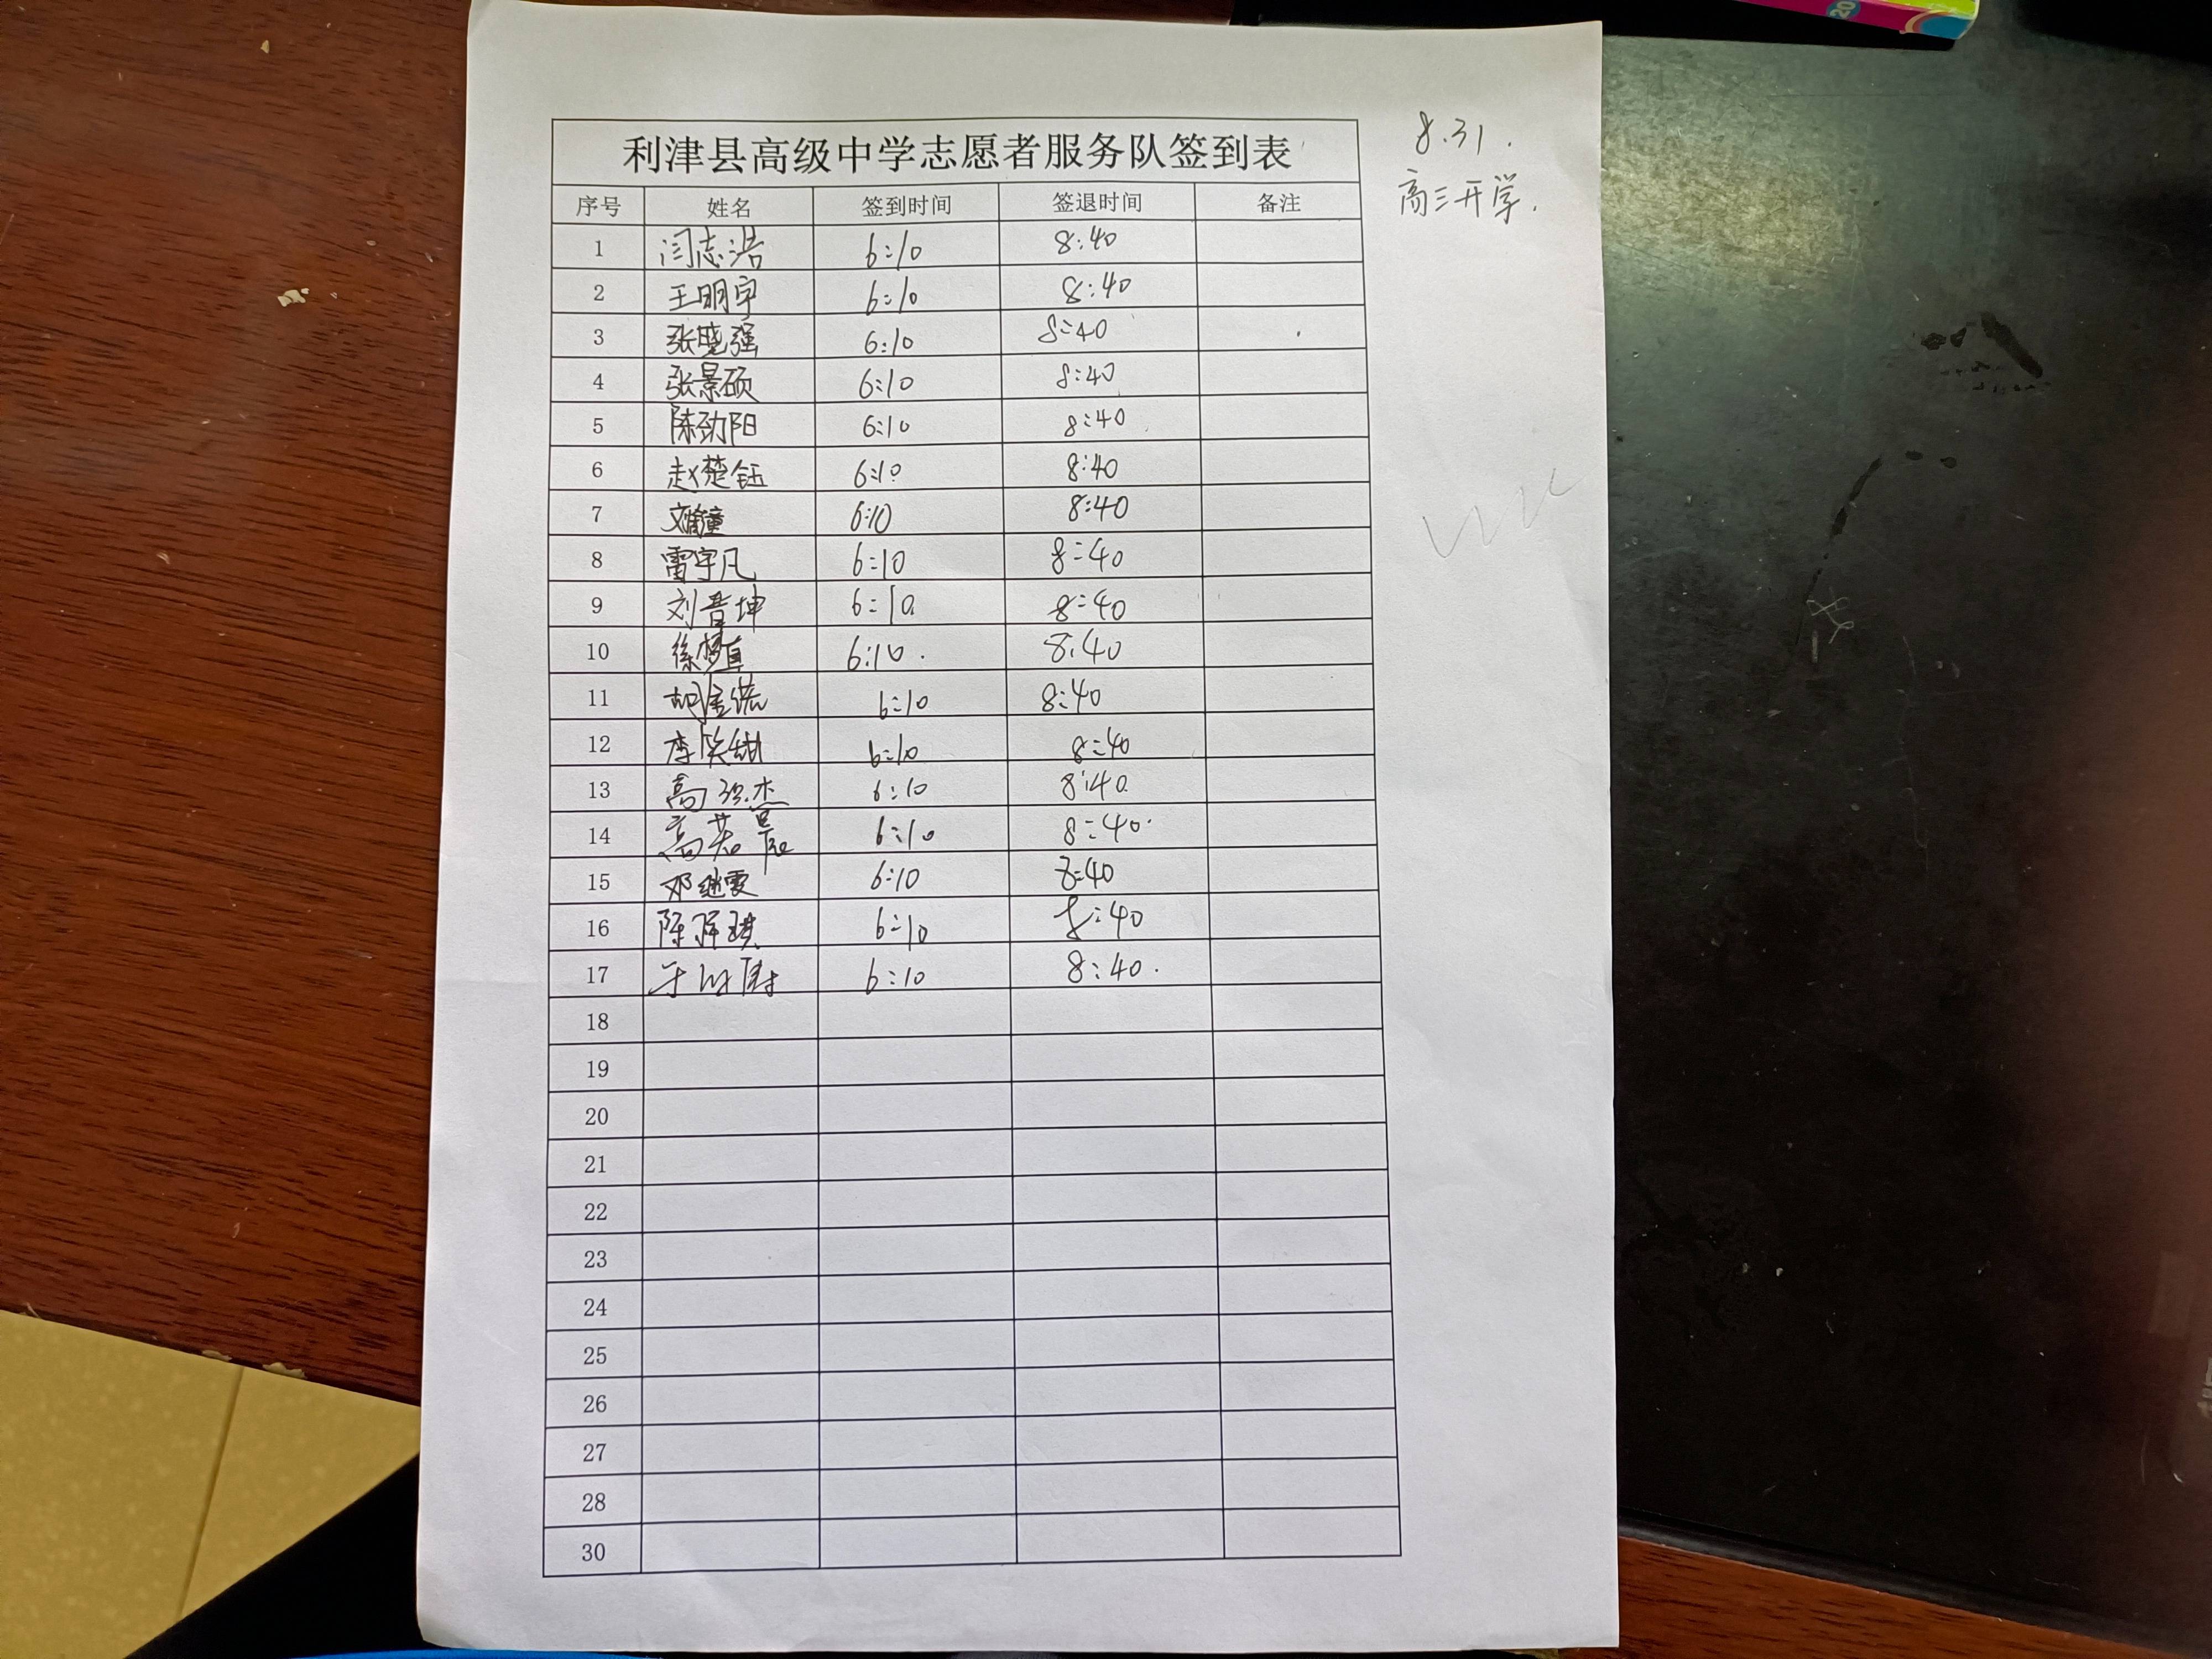 利津县高级中学志愿者服务队签到表
8.31.
高三开学.
序号 姓名 签到时间 签退时间 备注
1 闫志浩 6:10 8:40
2 王明宇 6:10 8:40
3 张晓强 6:10 8:40
4 张景硕 6:10 8:40
5 陈劲阳 6:10 8:40
6 赵楚钰 6:10 8:40
7 6:10 8:40
8 雷宇凡 6:10 8:40
9 刘晋坤 6:10 8:40
10 徐梦真 6:10 8:40
11 胡 6:10 8:40
12 李笑甜 6:10 8:40
13 高 杰 6:10 8:40
14 高若晨 6:10 8:40
15 邓继雯 6:10 8:40
16 陈 琪 6:10 8:40
17 于 6:10 8:40
18
19
20
21
22
23
24
25
26
27
28
30
20